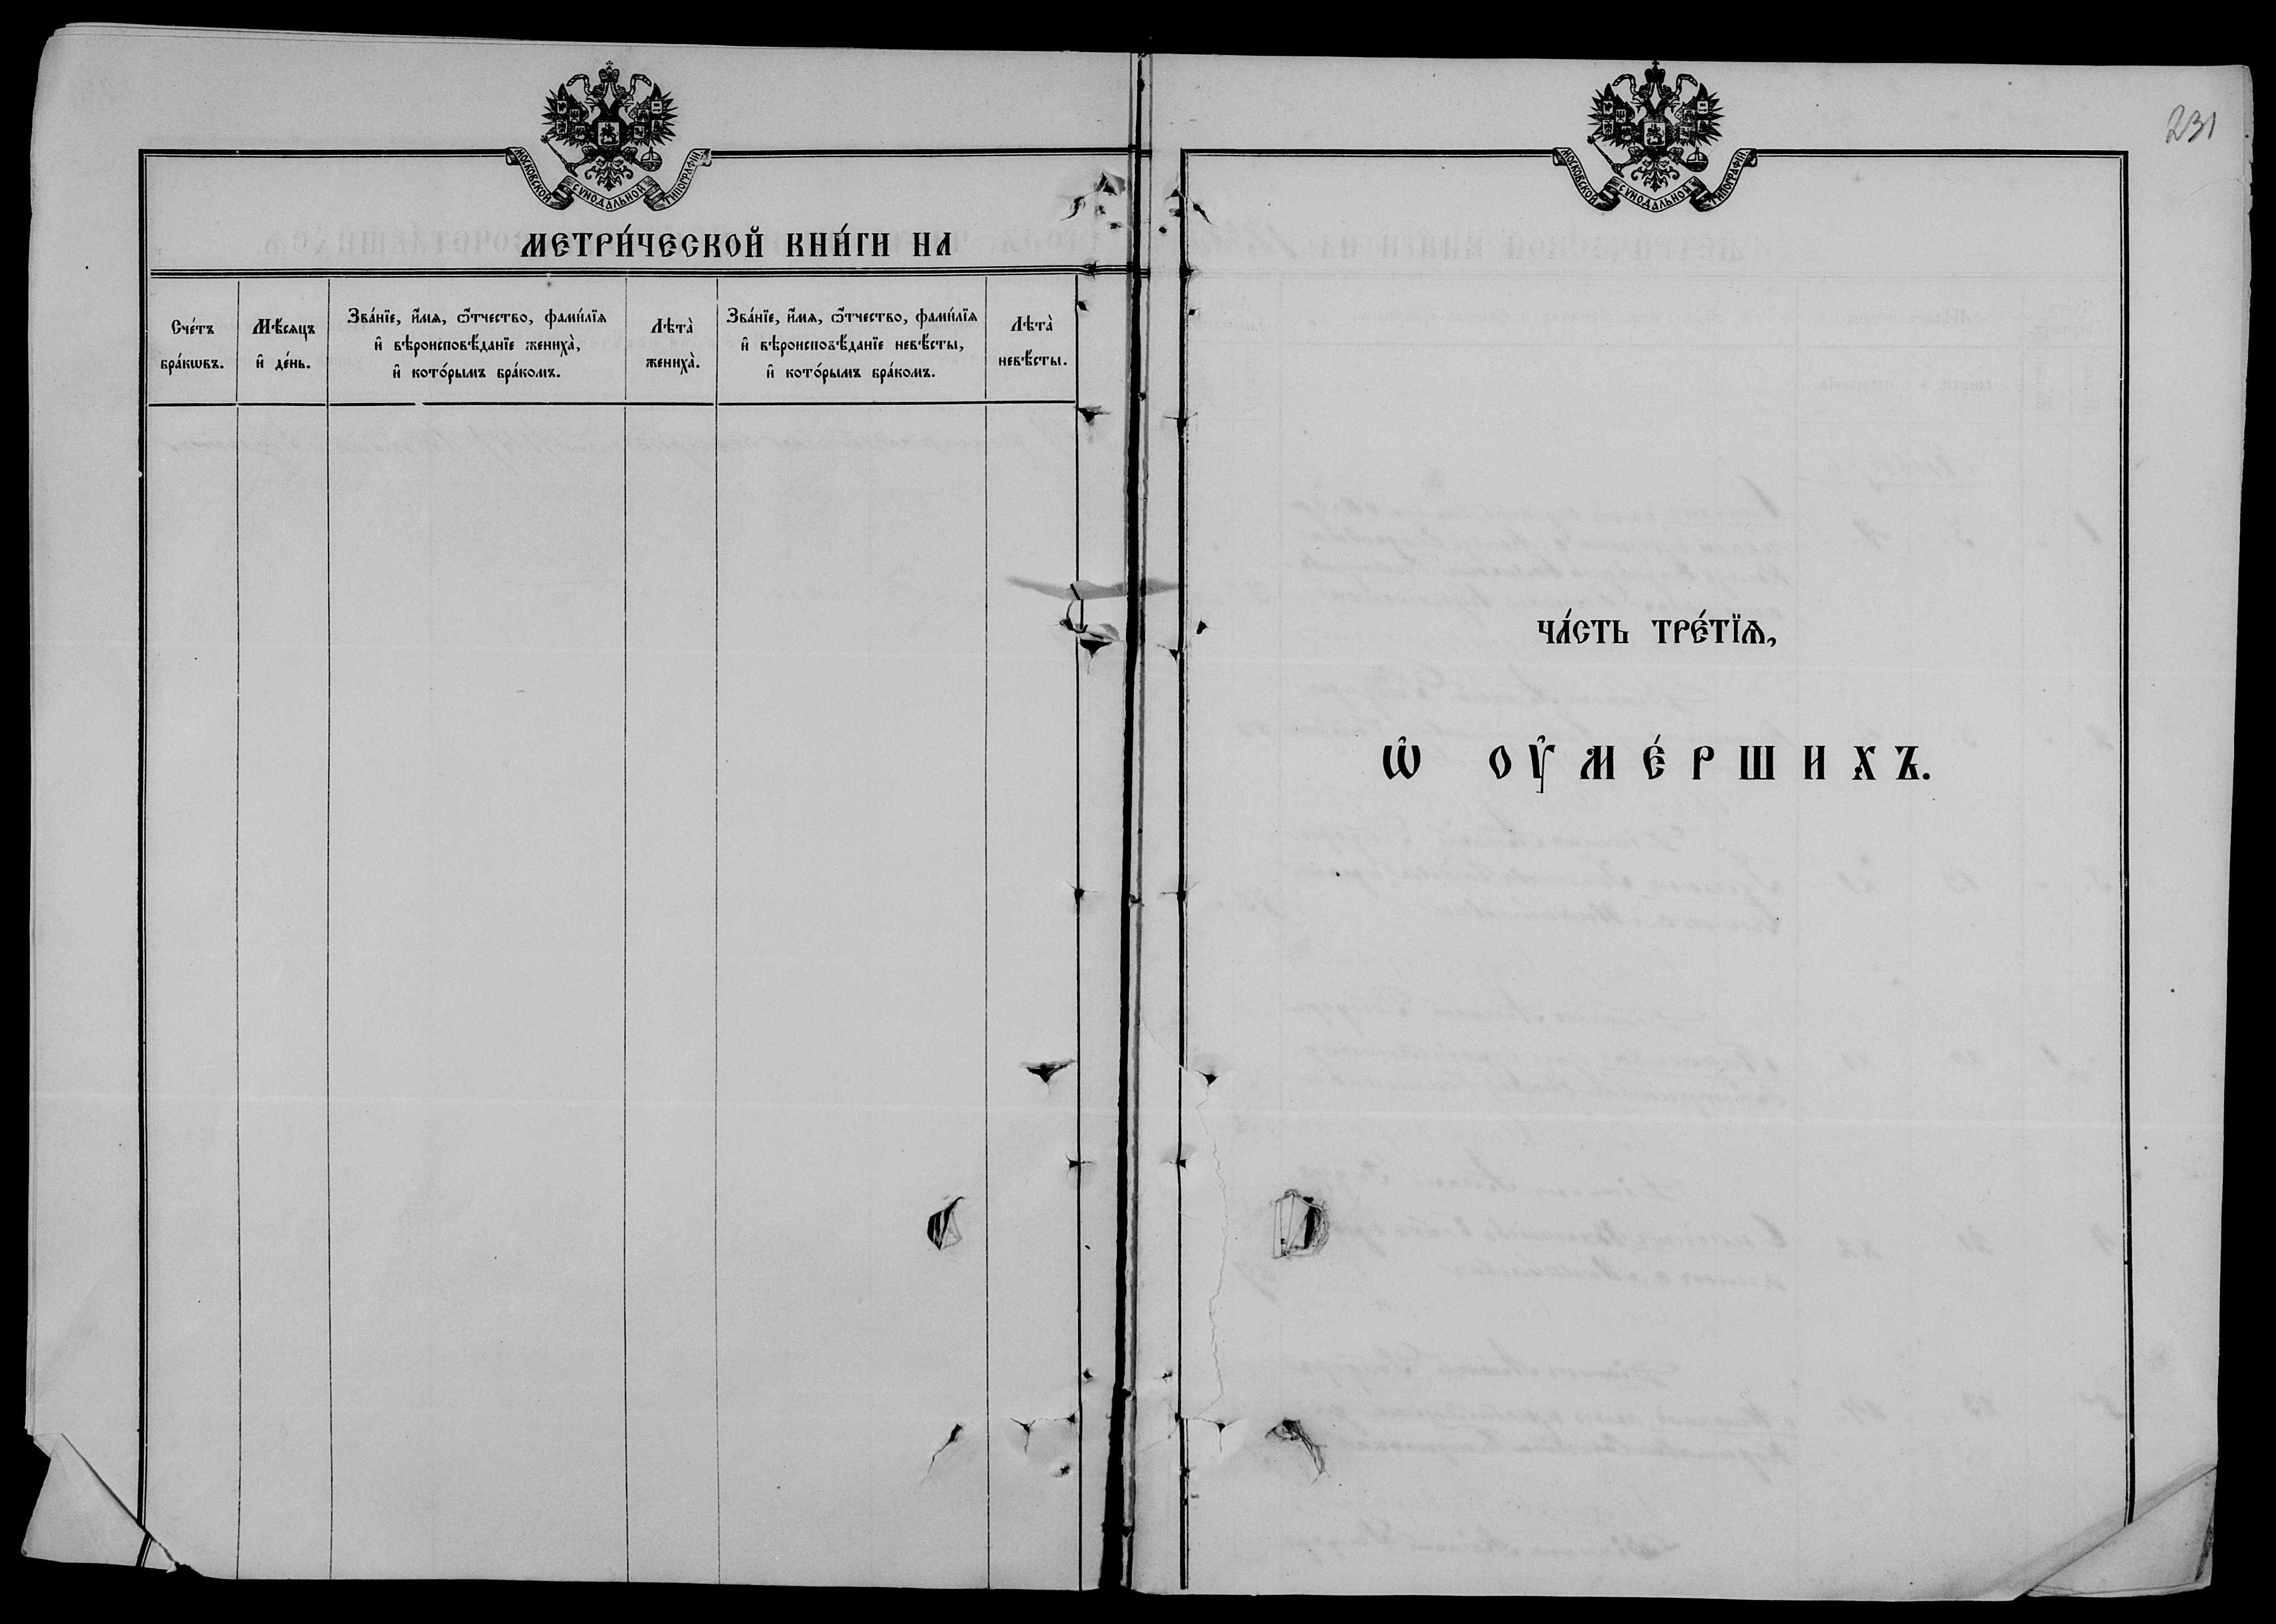 МОСКОВСКОЙ СѴНОДАЛЬНОЙ ТИПОГРАФІИ.
МЕТРИ́ЧЕСКОЙ КНИ́ГИ НА
Сче́тъ
бра́кѡвъ.
Мѣ́сяцъ
и҆ де́нь.
Зва́нїе, и҆́мѧ, ѻ҆́тчество, фами́лїѧ
и҆ вѣроисповѣ́данїе жениха̀,
и҆ кото́рымъ бра́комъ.
Лѣта̀
жениха̀.
Зва́нїе, и҆́мѧ, ѻ҆́тчество, фами́лїѧ
и҆ вѣроисповѣ́данїе невѣ́сты,
и҆ кото́рымъ бра́комъ.
Лѣта̀
невѣ́сты.
231
МОСКОВСКОЙ СѴНОДАЛЬНОЙ ТИПОГРАФІИ.
ЧА́СТЬ ТРЕ́ТЇѦ,
Ѡ҆ ОУ҆МЕ́РШИХЪ.